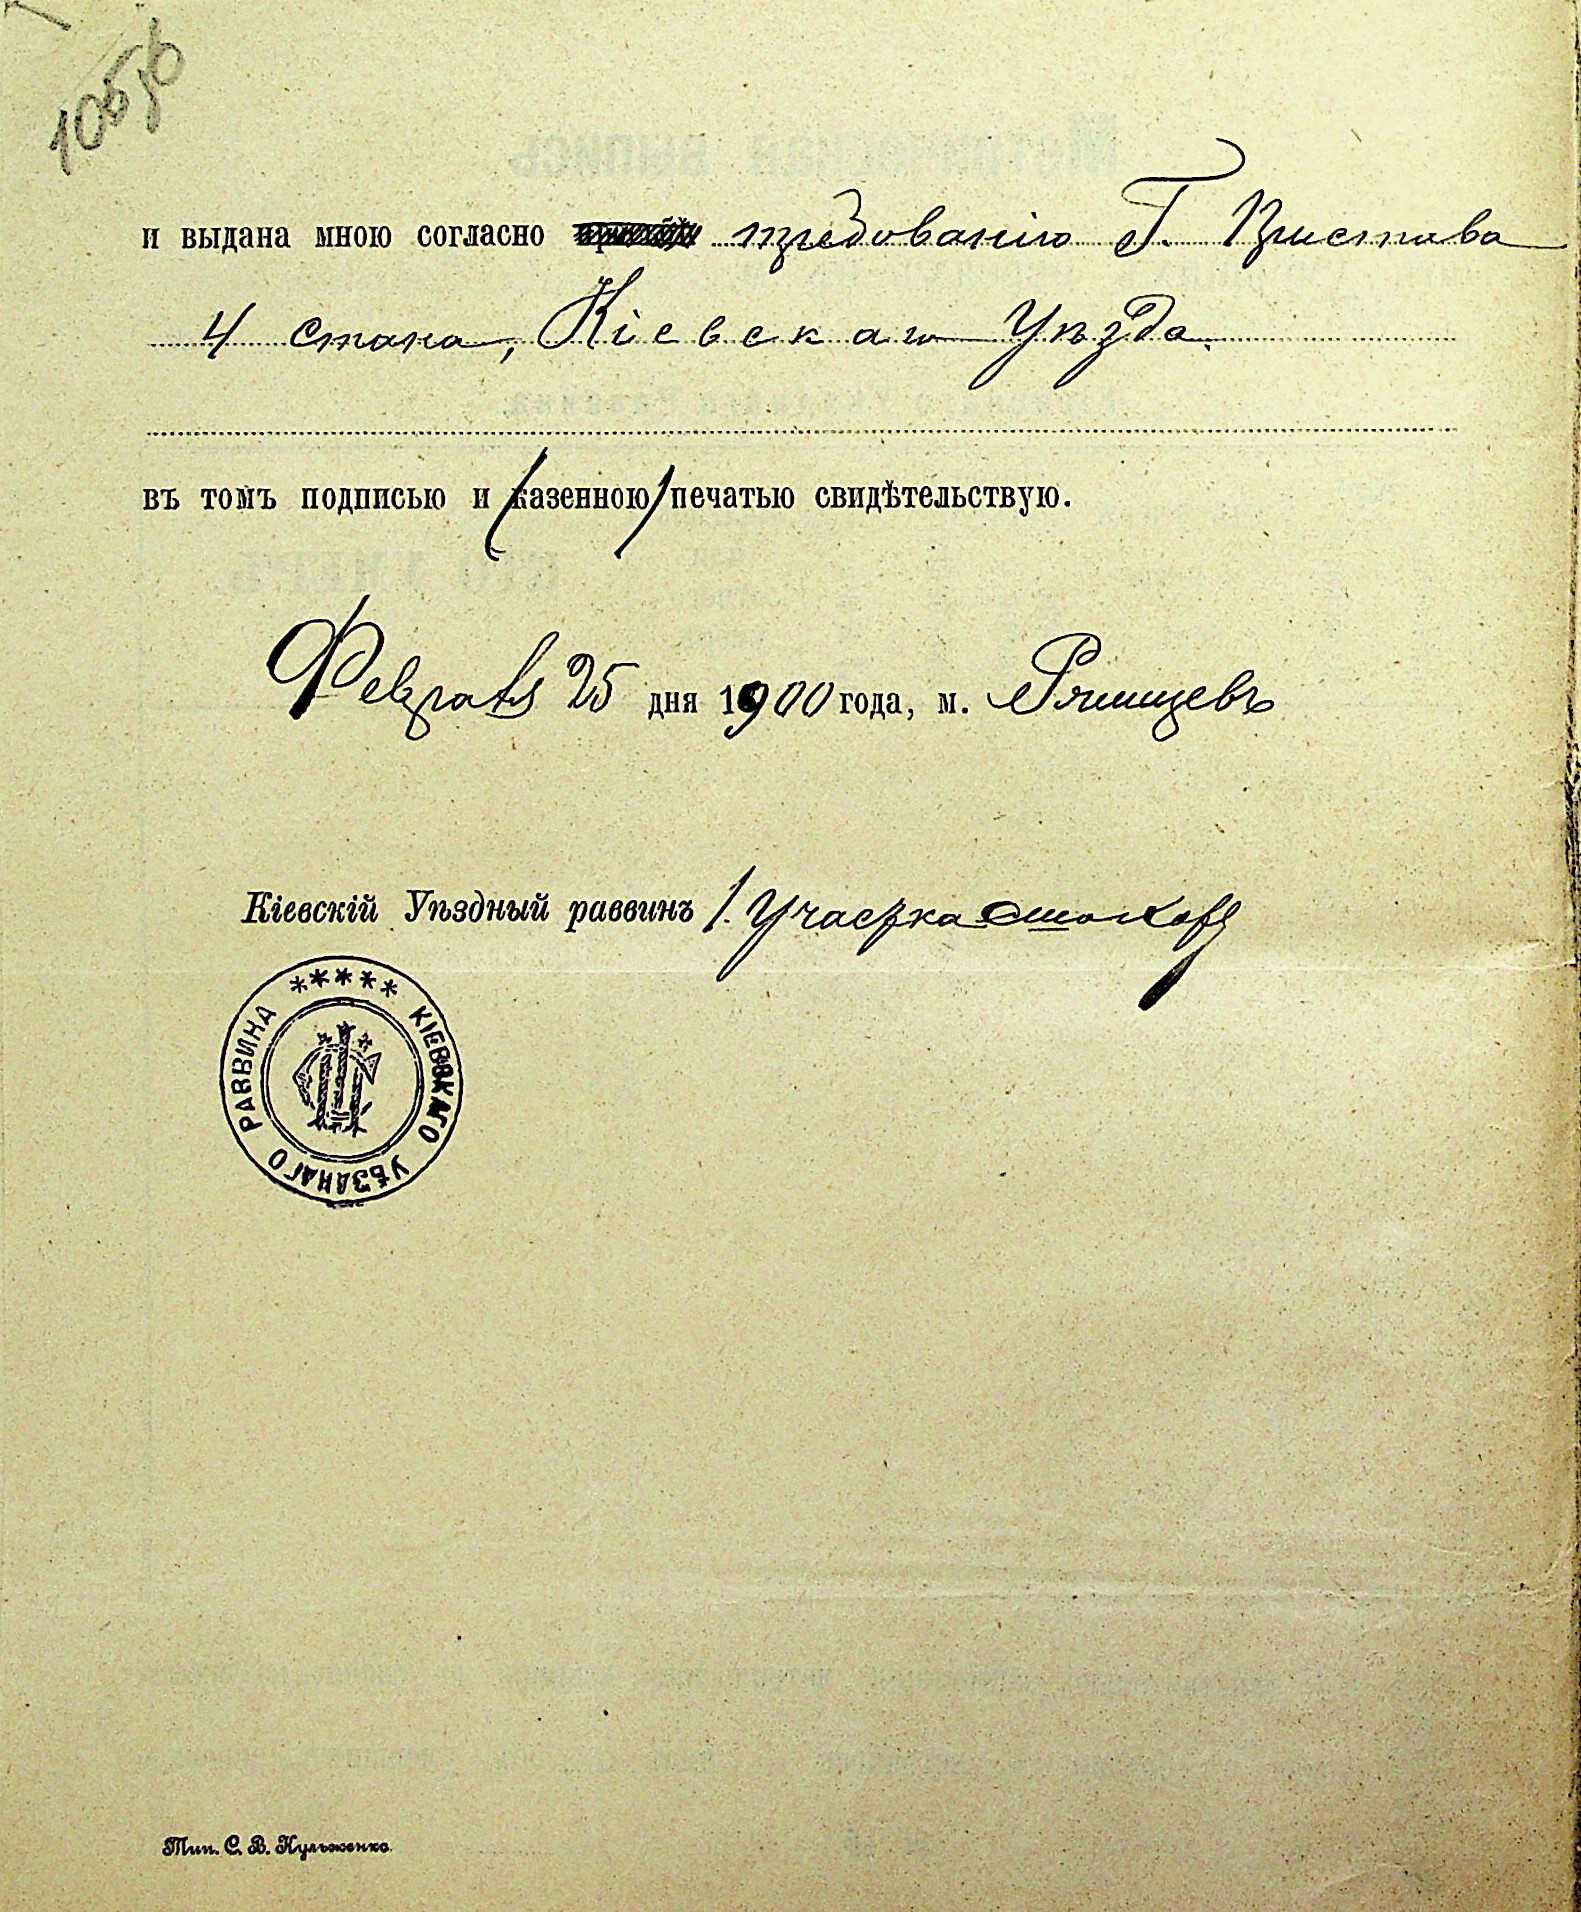 106 об
и выдана мною согласно требованію Г. Пристава
4 стана, Кіевскаго Уѣзда.
въ томъ подписью и (казенною) печатью свидѣтельствую.
Февраля 25 дня 1900 года, м. Ржищевъ
Кіевскій Уѣздный раввинъ 1. Участка
***** КІЕВСКАГО УѢЗДНАГО РАВВИНА
Тип. С. В. Кульженко.